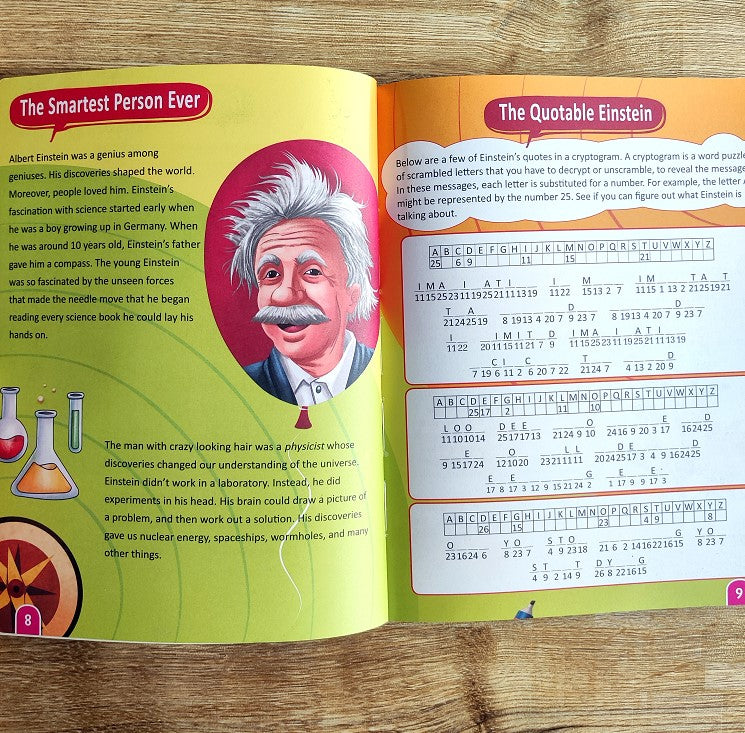 The Smartest Person Ever
Albert Einstein was a genius among
geniuses. His discoveries shaped the world.
Moreover, people loved him. Einstein's
fascination with science started early when
he was a boy growing up in Germany. When
he was around 10 years old, Einstein's father
gave him a compass. The young Einstein
was so fascinated by the unseen forces
that made the needle move that he began
reading every science book he could lay his
hands on.
The man with crazy looking hair was a physicist whose
discoveries changed our understanding of the universe.
Einstein didn't work in a laboratory. Instead, he did
experiments in his head. His brain could draw a picture of
a problem, and then work out a solution. His discoveries
gave us nuclear energy, spaceships, wormholes, and many
other things.
8
The Quotable Einstein
Below are a few of Einstein's quotes in a cryptogram. A cryptogram is a word puzzle
of scrambled letters that you have to decrypt or unscramble, to reveal the message
In these messages, each letter is substituted for a number. For example, the letter
might be represented by the number 25. See if you can figure out what Einstein is
talking about.
A B C D E F G H I J K L M N O P Q R S T U V W X Y Z
25 6 9 11 15 21
I M A I A T I I M I M T A T
11 15 25 23 11 19 25 21 11 13 19 11 22 15 13 2 7 11 15 1 13 2 21 25 19 21
T A D D
21 24 25 19 8 19 13 4 20 7 9 23 7 8 19 13 4 20 7 9 23 7
I I M I T D I M A I A T I
11 22 20 11 15 11 21 7 9 11 15 25 23 11 19 25 21 11 13 19
C I C T D
7 19 6 11 2 6 20 7 22 21 24 7 4 13 2 20 9
A B C D E F G H I J K L M N O P Q R S T U V W X Y Z
25 17 2 11 10
L O O D E E O E D
11 10 10 14 25 17 17 13 21 24 9 10 24 16 9 20 3 17 16 24 25
E O L L D E D
9 15 17 24 12 10 20 23 21 11 11 20 24 25 17 3 4 9 16 24 25
E E G E E
17 8 17 3 12 9 15 21 24 2 1 17 9 9 17 3
A B C D E F G H I J K L M N O P Q R S T U V W X Y Z
26 15 23 4 9 8
O Y O S T O G Y O
23 16 24 6 8 23 7 4 9 23 18 21 6 2 14 16 22 16 15 8 23 7
S T T D Y G
4 9 2 14 9 26 8 22 16 15
9